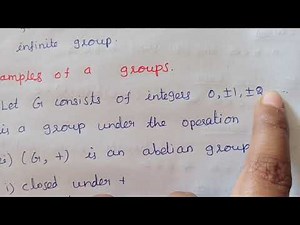 infinite group.
amples of a groups.
Let G consists of integers 0, ±1, ±2
is a group under the operation
ii) (G, +) is an abelian group
i) closed under +